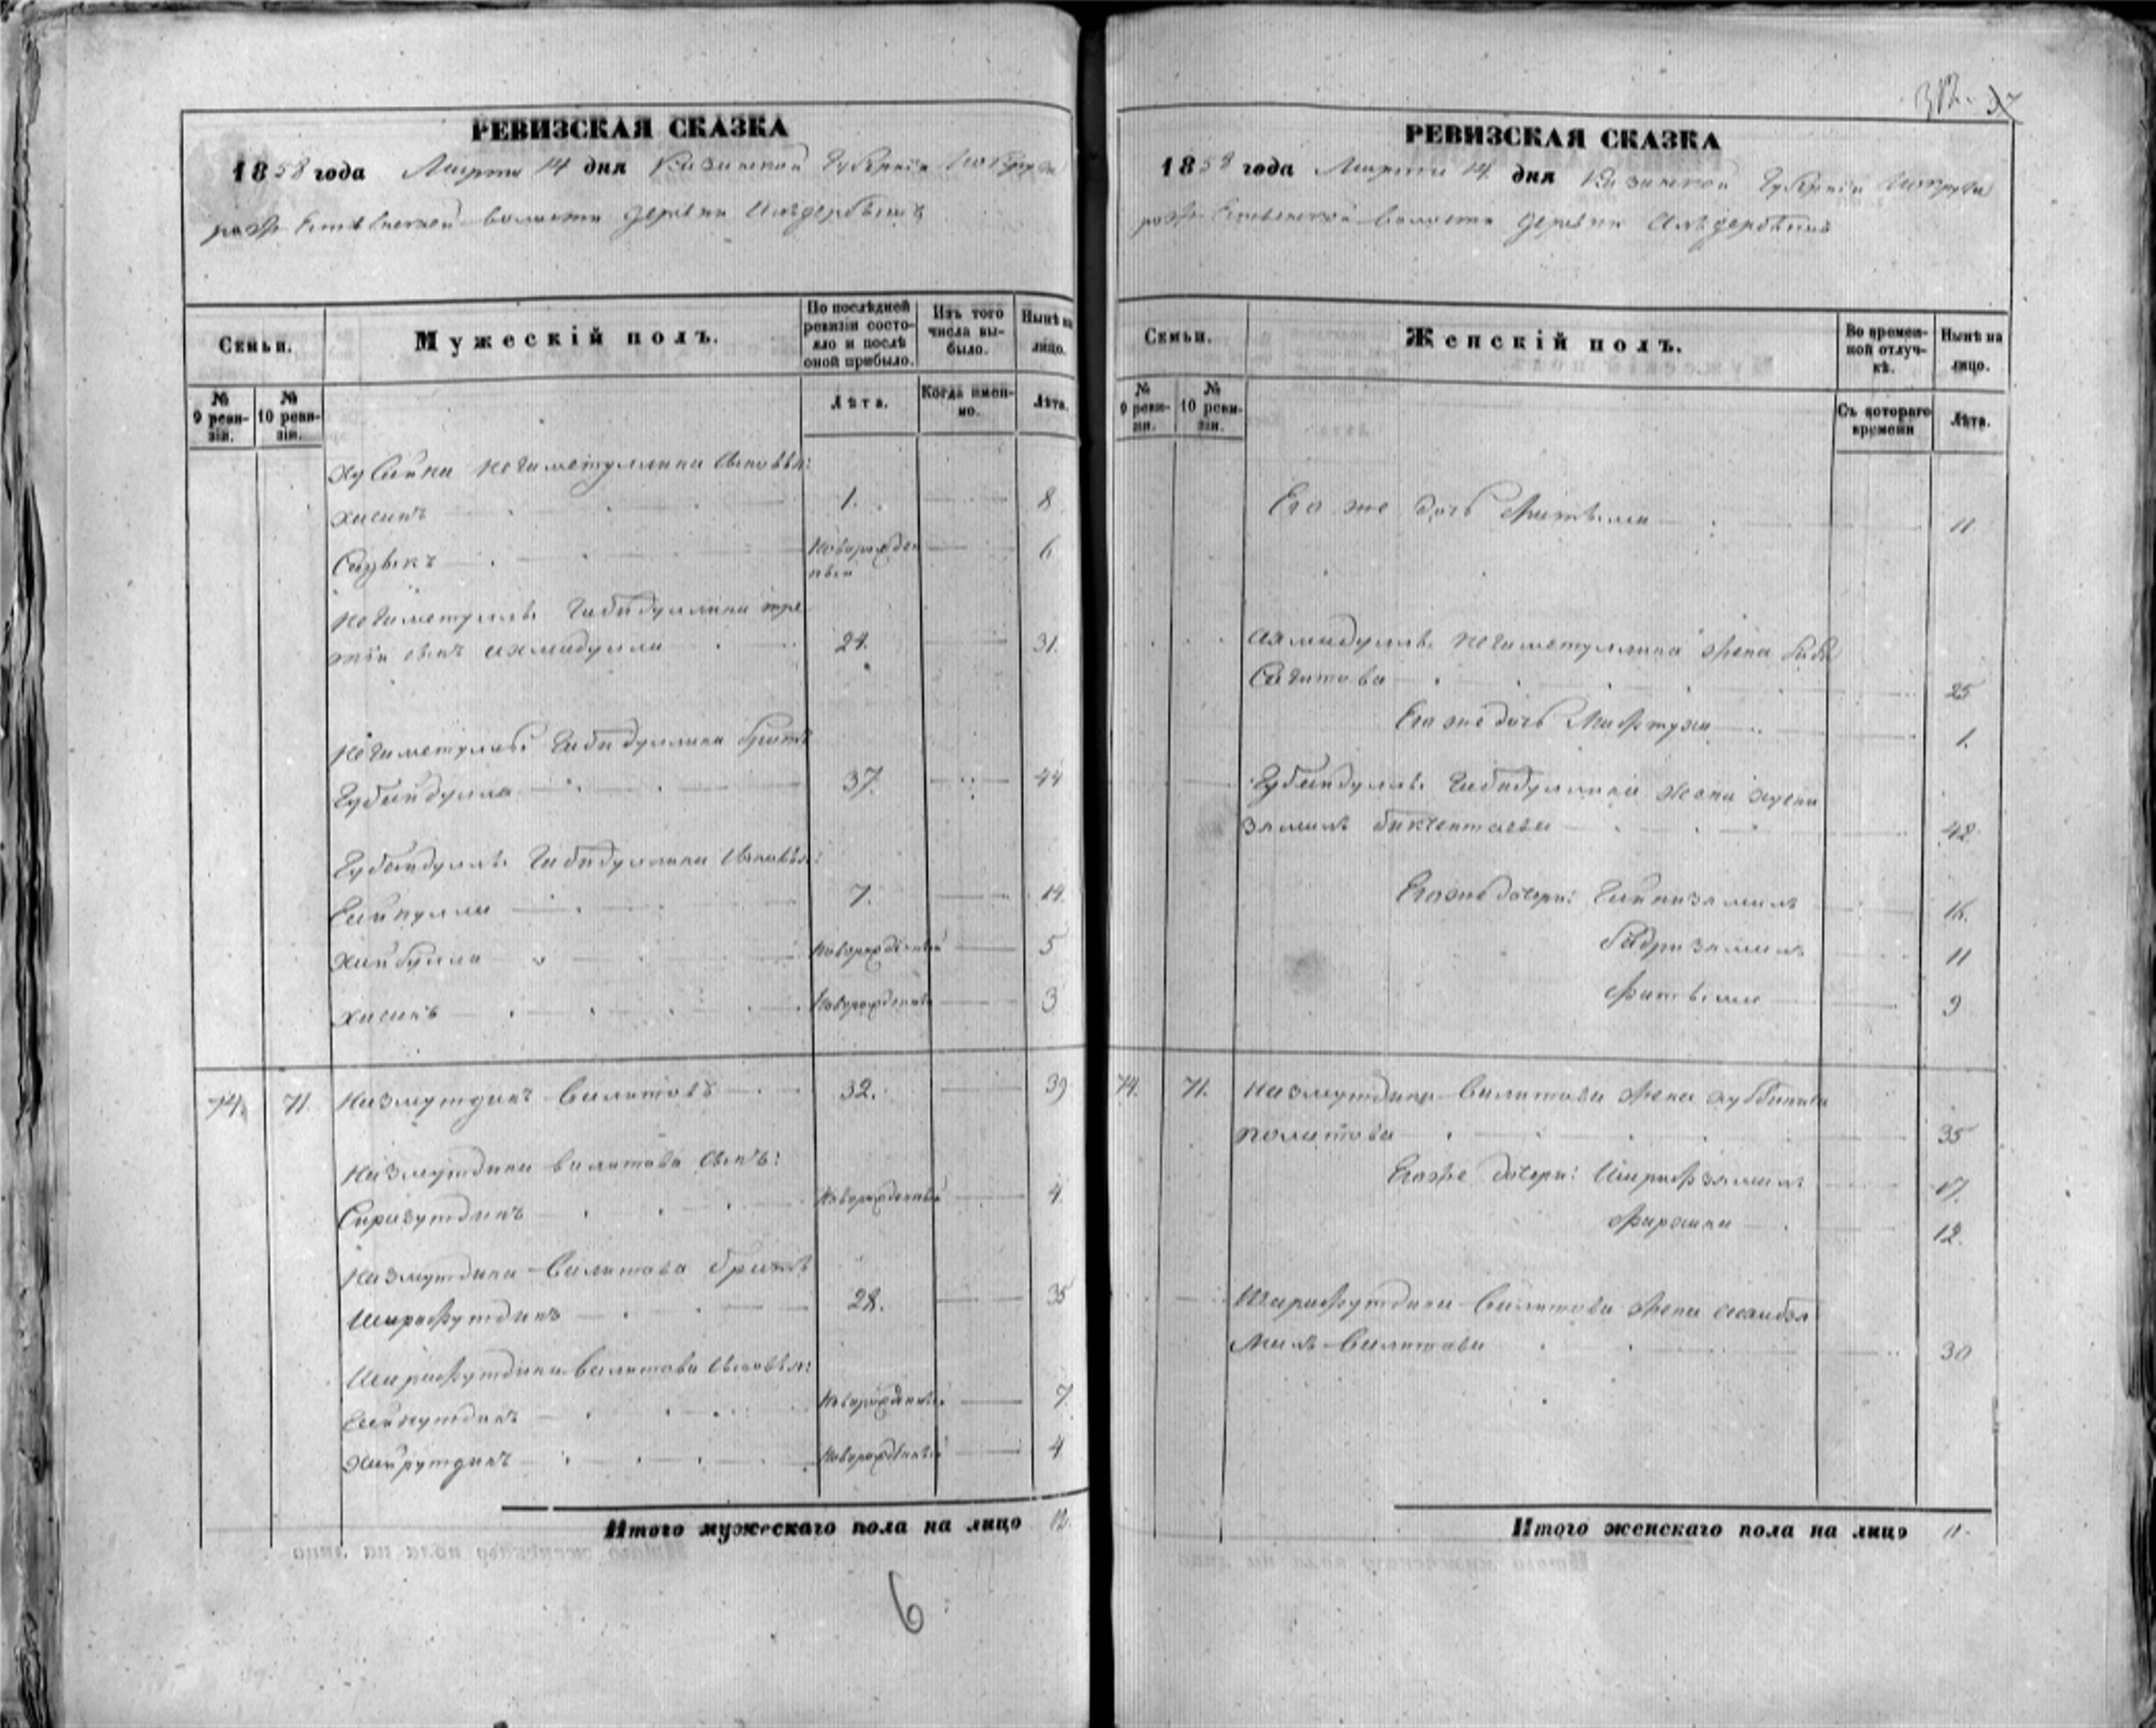 312.
РЕВИЗСКАЯ СКАЗКА
1858 года Марта 14 дня Казанской Губернiи
волости деревни
Семьи.
Мужескiй полъ.
По послѣдней ревизiи состояло и послѣ оной прибыло.
Изъ того числа выбыло.
Нынѣ на лицо.
№ 9 ревизiи.
№ 10 ревизiи.
Лѣта.
Когда именно.
Лѣта.
Хусаина Негаметуллина сыновья:
Хасанъ 1. 8
Садыкъ Новорожденный 6
Негаметуллы Габидуллина третiй сынъ Ахмадулла 24. 31.
Негаметуллы Габидуллина братъ
Губайдулла 37. 44
Губайдуллы Габидуллина сыновья:
Гайнулла 7. 14.
Хайбулла Новорожденный 5
Хасанъ Новорожденный 3
74. 71. Назмутдинъ Валитовъ 32. 39
Назмутдина Валитова сынъ:
Сиразутдинъ Новорожденный 4.
Назмутдина Валитова братъ
Шарафутдинъ 28. 35
Шарафутдина Валитова сыновья:
Гайнутдинъ Новорожденный 7.
Хайрутдинъ Новорожденный 4
Итого мужескаго пола на лицо 12.
6
РЕВИЗСКАЯ СКАЗКА
1858 года Марта 14 дня Казанской Губернiи
волости деревни
Семьи.
Женскiй полъ.
Во временной отлучкѣ.
Нынѣ на лицо.
№ 9 ревизiи.
№ 10 ревизiи.
Съ котораго времени
Лѣта.
Его же дочь Фатыма 11
Ахмадуллы Негаметуллина жена
Сагитова 25
Его же дочь 1.
Губайдуллы Габидуллина жена
Бикчентаева 42
Его же дочери: Гайнизямалъ 16.
Бадризямалъ 11
Фатыма 9
74. 71. Назмутдина Валитова жена
35
Его же дочери: Шарафзямалъ 17.
12.
Шарафутдина Валитова жена
Валитова 30
Итого женскаго пола на лицо 11.